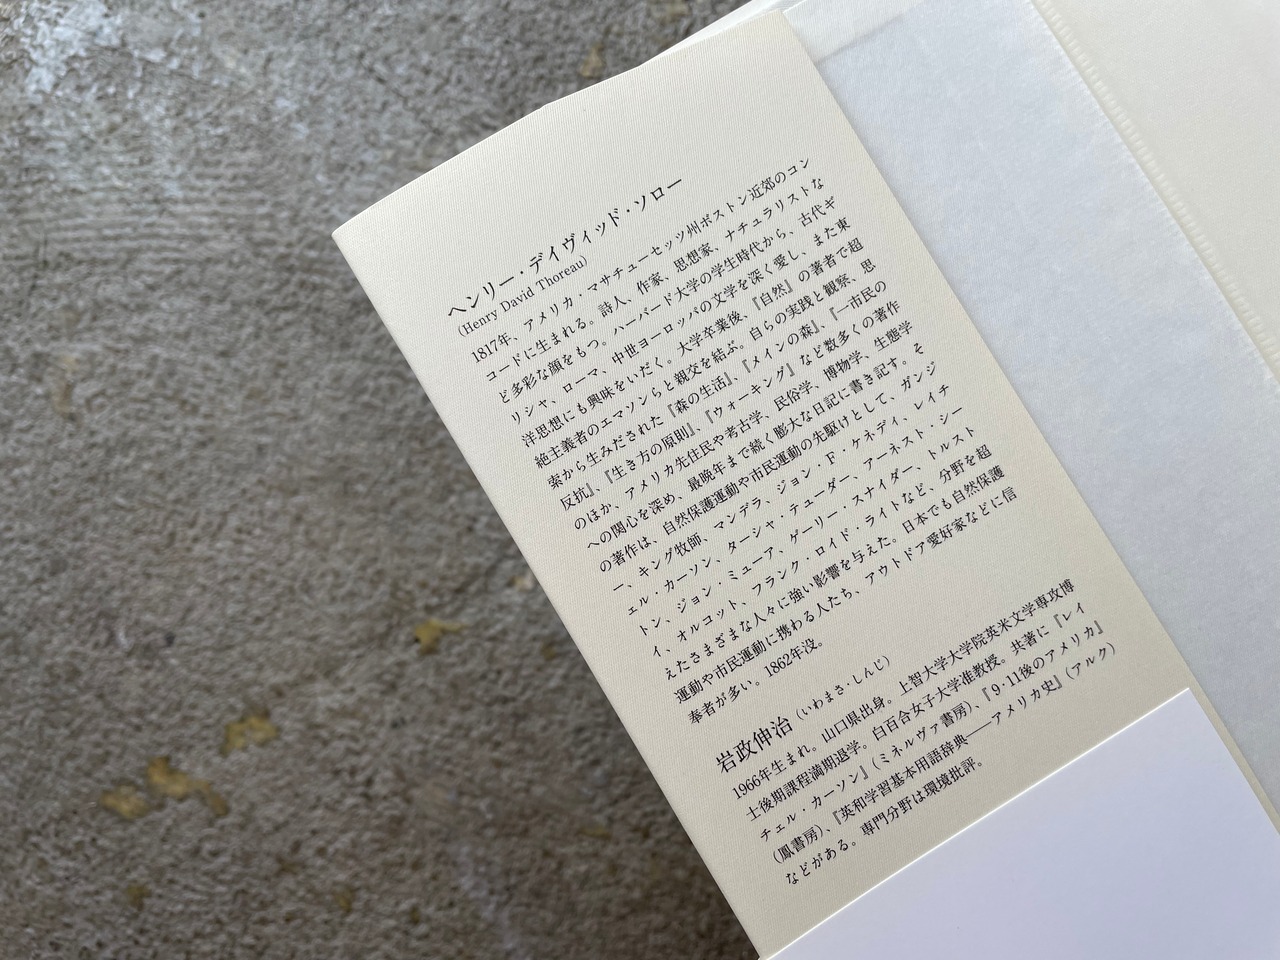 ヘンリー・デイヴィッド・ソロー
(Henry David Thoreau)
1817年、アメリカ・マサチューセッツ州ボストン近郊のコン
コードに生まれる。詩人、作家、思想家、ナチュラリストな
ど多彩な顔をもつ。ハーバード大学の学生時代から、古代ギ
リシャ、ローマ、中世ヨーロッパの文学を深く愛し、また東
洋思想にも興味をいだく。大学卒業後、『自然』の著者で超
絶主義者のエマソンらと親交を結ぶ。自らの実践と観察、思
索から生みだされた『森の生活』、『メインの森』、『一市民の
反抗』、『生き方の原則』、『ウォーキング』など数多くの著作
のほか、アメリカ先住民や考古学、民俗学、博物学、生態学
への関心を深め、最晩年まで続く膨大な日記に書き記す。そ
の著作は、自然保護運動や市民運動の先駆けとして、ガンジ
ー、キング牧師、マンデラ、ジョン・F・ケネディ、レイチ
ェル・カーソン、ターシャ・テューダー、アーネスト・シー
トン、ジョン・ミューア、ゲーリー・スナイダー、トルスト
イ、オルコット、フランク・ロイド・ライトなど、分野を超
えたさまざまな人々に強い影響を与えた。日本でも自然保護
運動や市民運動に携わる人たち、アウトドア愛好家などに信
奉者が多い。1862年没。
岩政伸治 (いわまさ・しんじ)
1966年生まれ。山口県出身。上智大学大学院英米文学専攻博
士後期課程満期退学。白百合女子大学准教授。共著に『レイ
チェル・カーソン』(ミネルヴァ書房)、『9・11後のアメリカ』
(鳳書房)、『英和学習基本用語辞典――アメリカ史』(アルク)
などがある。専門分野は環境批評。